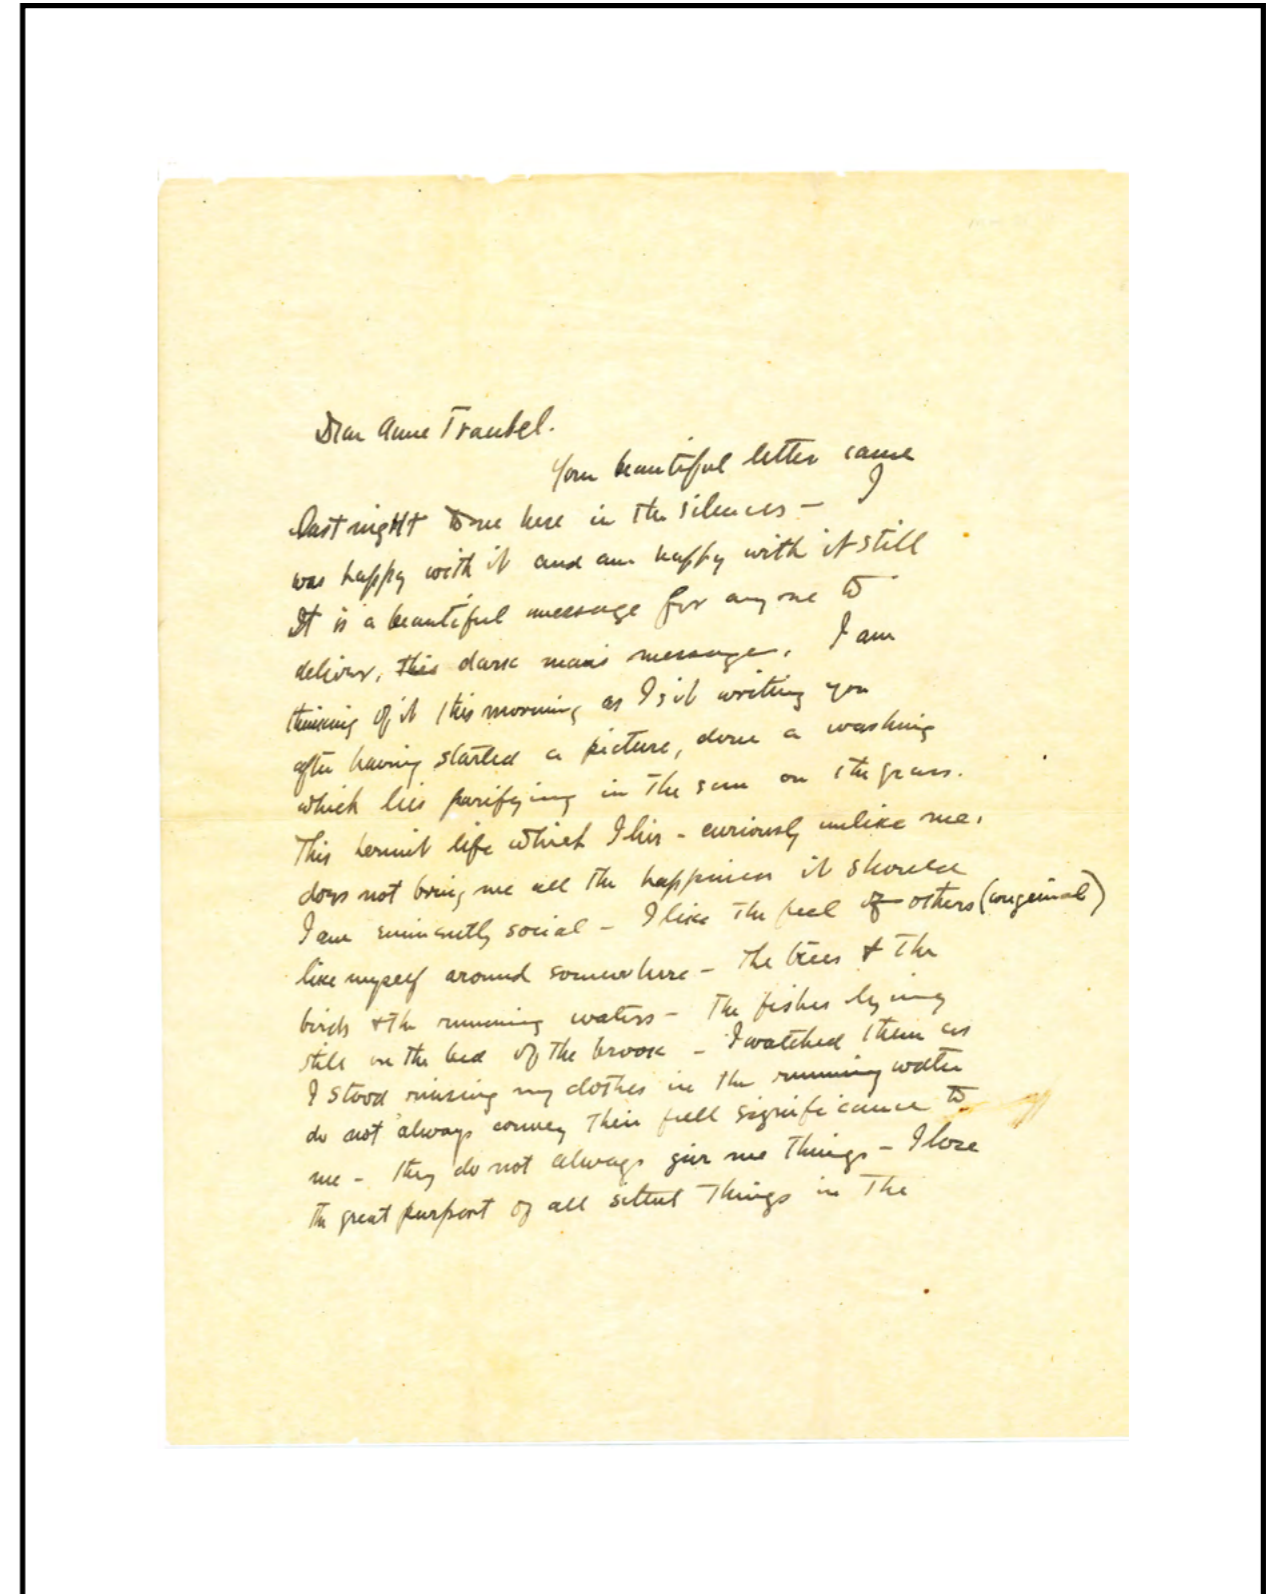 Dear Anne Traubel.
Your beautiful letter came
last night to me here in the silences – I
was happy with it and am happy with it still
It is a beautiful message for any one to
deliver, this dark man's message. I am
thinking of it this morning as I sit writing you
after having started a picture, done a washing
which lies purifying in the sun on the grass.
This hermit life which I live – curiously unlike me,
does not bring me all the happiness it should
I am eminently social – I like the feel of others (congenial)
like myself around somewhere – The trees & the
birds & the running waters – The fishes lying
still on the bed of the brook – I watched them as
I stood rinsing my clothes in the running water
do not always convey their full significance to
me – they do not always give me things – I lose
the great purport of all silent things in the